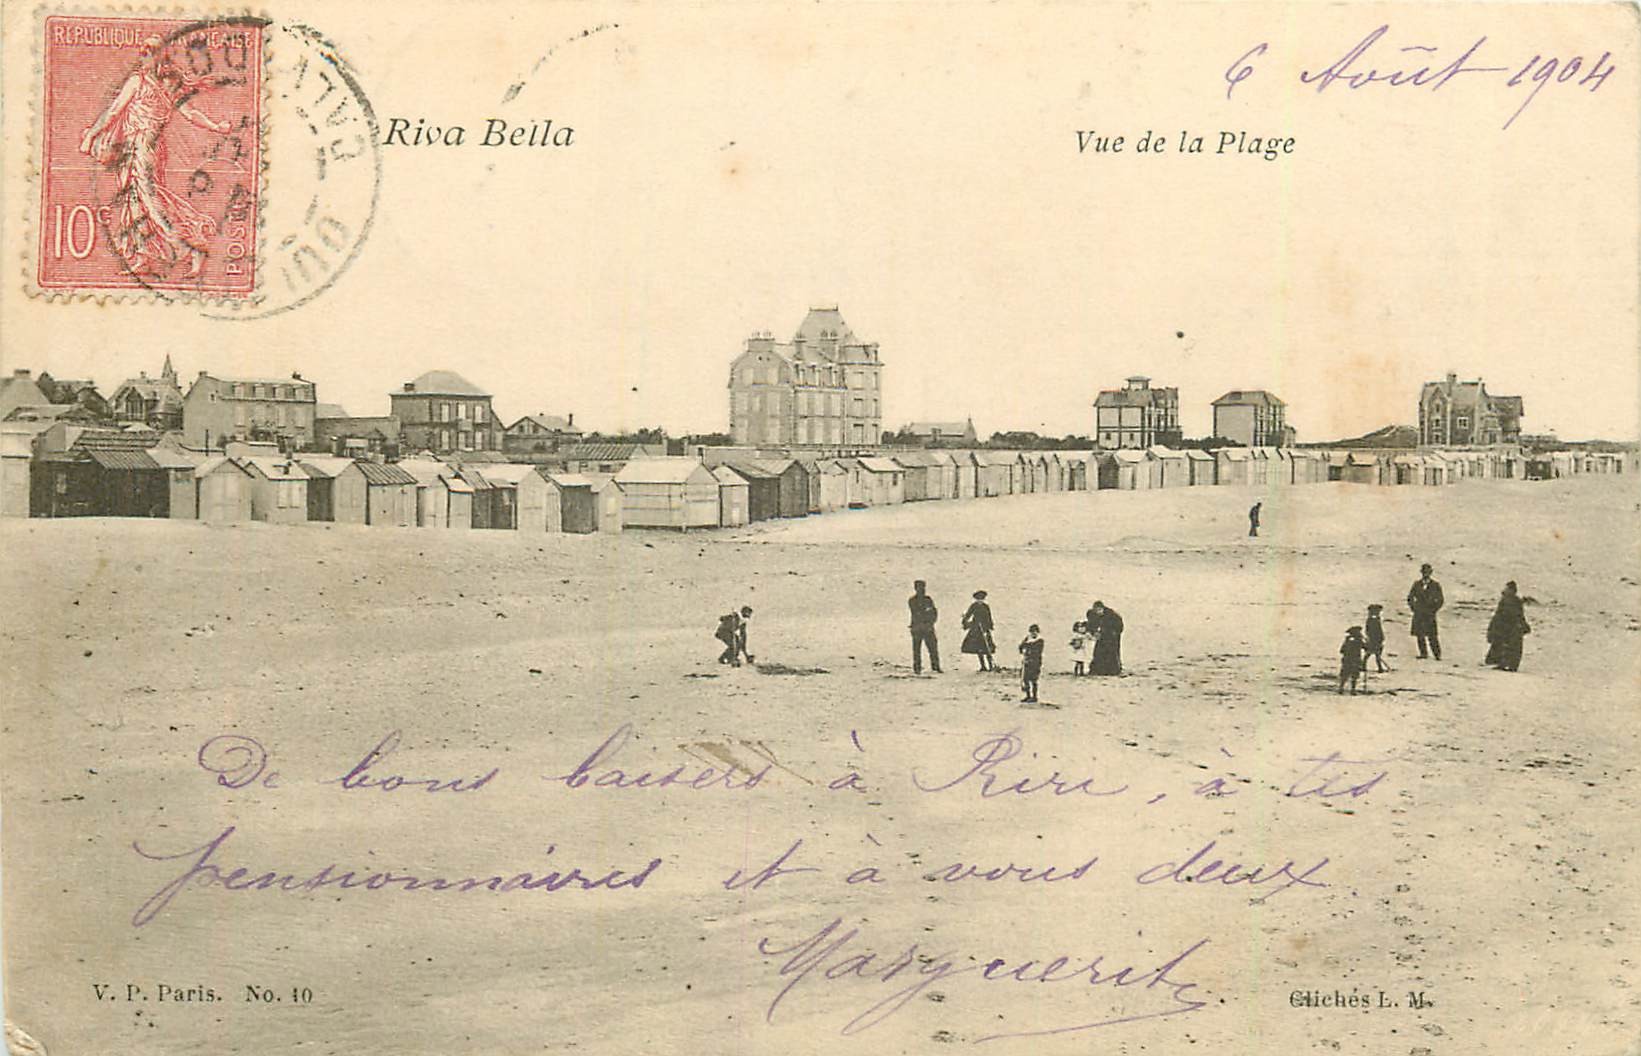 RÉPUBLIQUE FRANÇAISE
10c
POSTES
CALVADOS
6 Août 1904
Riva Bella
Vue de la Plage
De bons baisers à Riri, à tes
pensionnaires et à vous deux
Marguerite
V. P. Paris. No. 10
Clichés L. M.